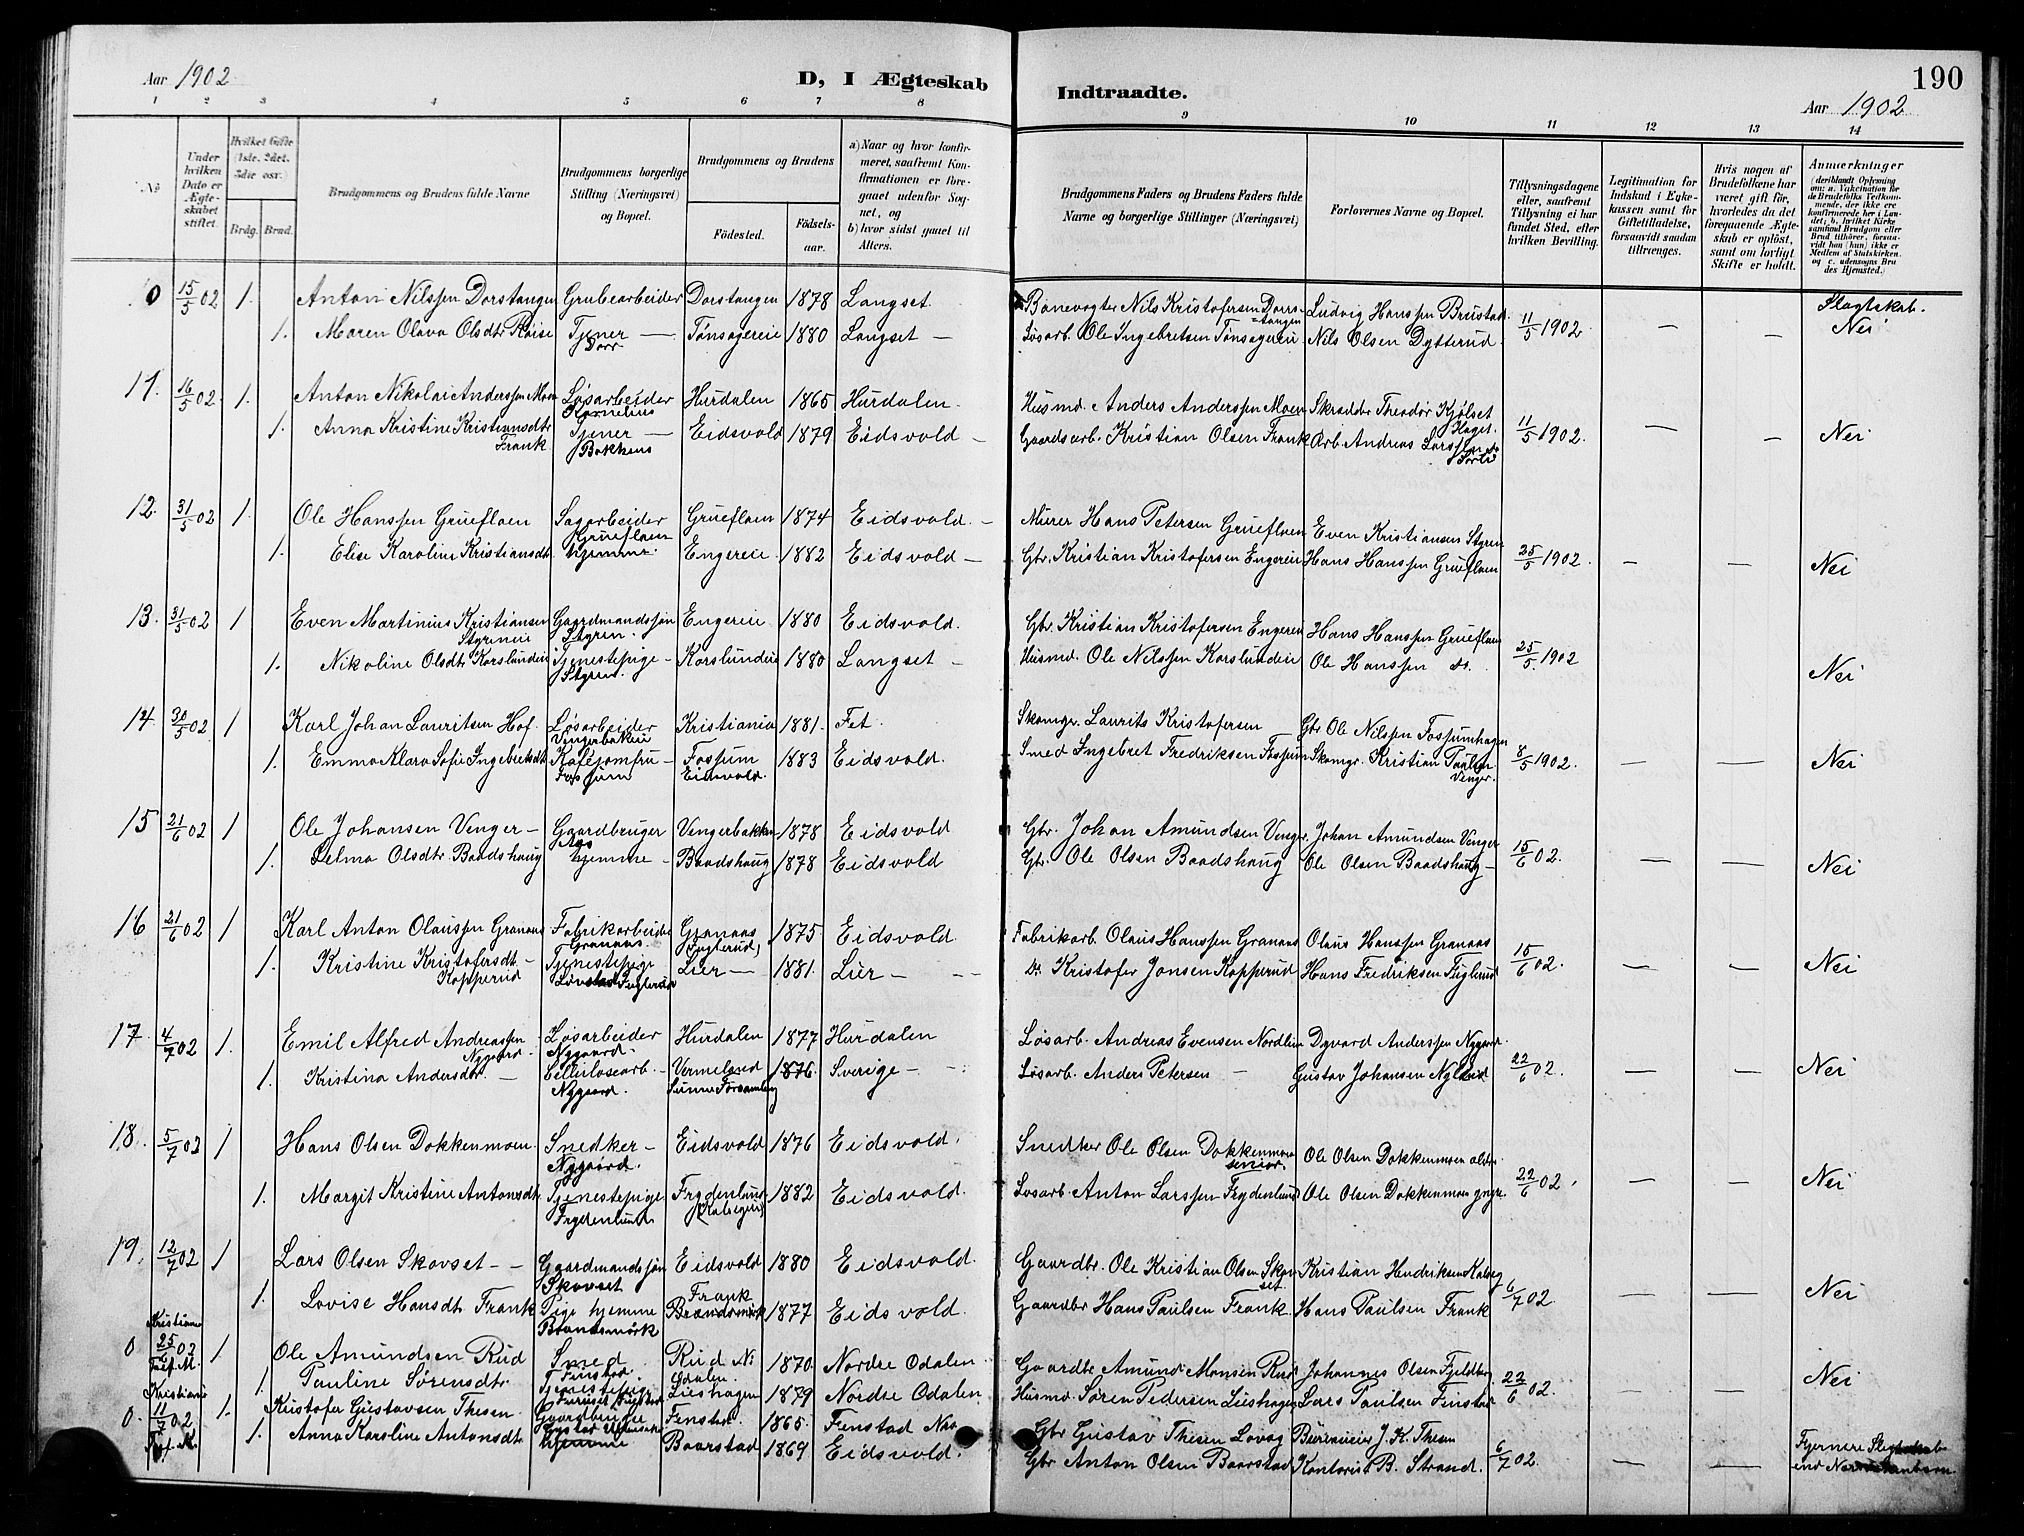 Aar 1902
D, I Ægteskab
Indtraadte.
190
Aar 1902
1 2 3 4 5 6 7 8
9 10 11 12 13 14
No
Under hvilken Dato er Ægteskabet stiftet.
Hvilket Gifte (1ste, 2det, 3die osv.)
Brdg. Brud.
Brudgommens og Brudens fulde Navne
Brudgommens borgerlige Stilling (Næringsvei) og Bopæl.
Brudgommens og Brudens
Fødested.
Fødselsaar.
a) Naar og hvor konfirmeret, saafremt Konfirmationen er foregaaet udenfor Sognet, og
b) hvor sidst gaaet til Alters.
Brudgommens Faders og Brudens Faders fulde Navne og borgerlige Stillinger (Næringsvei)
Forlovernes Navne og Bopæl.
Tillysningsdagene eller, saafremt Tillysning ei har fundet Sted, efter hvilken Bevilling.
Legitimation for Indskud i Enkekassen samt for Giftetilladelse, forsaavidt saadan tiltrænges.
Hvis nogen af Brudefolkene har været gift før, hvorledes da det foregaaende Ægteskab er opløst, samt om lovligt Skifte er holdt.
Anmerkninger (deriblandt Oplysning om: a. Vakcination for de Brudefolks Vedkommende, der ikke ere konfirmerede her i Landet; b. hvilket Kirkesamfund Brudgom eller Brud tilhører, forsaavidt han (hun) ikke er Medlem af Statskirken, og c. udensogns Brudes Hjemsted.)
10 15/5 02 1. Anton Nilssen Dorstangen Grubearbeider Dorstangen 1878 Langset. Banevogter Nils Kristofersen Dorrstangen Ludvig Hanssen Brustad 11/5 1902. — — Slagtskab. Nei
1. Maren Olava Olsdtr Røise Tjener — Dorr Tønsagereie 1880 Langset — Løsarb. Ole Ingebretsen Tønsagereie Nils Olsen Dytterud.
11. 16/5 02 1. Anton Nikolai Anderssen Moen Løsarbeider Kornelius Hurdalen 1865 Hurdalen. Husmd. Anders Anderssen Moen Skrædder Theodor Kjølset 11/5 1902. — — Nei
1. Anna Kristine Kristiansdtr Frank Tjener — Bakkens Eidsvold 1879 Eidsvold — Gaardsarb. Kristian Olsen Frank Arb. Andreas Larssen
12. 31/5 02 1. Ole Hanssen Grueflaen Sagarbeider Grueflaen Grueflaen 1874 Eidsvold. — Murer Hans Petersen Grueflaen Even Kristiansen Styren 25/5 1902. — — Nei
1. Elise Karoline Kristiansdtr. hjemme. Engereie 1882 Eidsvold — Gbr. Kristian Kristofersen Engereie Hans Hanssen Grueflaen
13. 31/5 02 1 Even Martinius Kristiansen Styreneie Gaardmandssøn Styren. Engereie 1880 Eidsvold. Gbr. Kristian Kristofersen Engereie Hans Hanssen Grueflaen 25/5 1902 Nei
1. Nikoline Olsdtr Korslundeie Tjenestepige — Styren. Korslundeie 1880 Langset — Husmd. Ole Nilssen Korslundeie Ole Hanssen do.
14. 30/5 02 1 Karl Johan Lauritsen Hof. Løsarbeider Vengerbakeie Kristiania 1881. Fet. Skomgr. Laurits Kristofersen Gbr Ole Nilssen Fossumhagen 8/5 1902. — — Nei
1. Emma Klara Sofie Ingebriktsdtr Kafejomfru — Fossum Fossum Eidsvold. 1883 Eidsvold. Smed Ingebret Fredriksen Fossum Skomgr. Kristian Paulsen Venger.
15 21/6 02 1 Ole Johansen Venger — Gaardbruger Aas Vengerbakken 1878 Eidsvold Gbr. Johan Amundsen Venger Johan Amundsen Venger 15/6 02. — — Nei
1. Selma Olsdtr. Baadshaug hjemme — Baadshaug 1878 Eidsvold Gbr. Ole Olsen Baadshaug Ole Olsen Baadshaug —
16 21/6 02 1 Karl Anton Olaussen Granaas Fabrikarbeider Granaas. Granaas Fuglerud 1875 Eidsvold Fabrikarb. Olaus Hanssen Granaas Olaus Hanssen Granaas 15/6 02. — — Nei
1. Kristine Kristofersdtr. — Kopperud Tjenestepige Fuglerud Lier — 1881. Lier — Do. Kristofer Jonsen Kopperud Hans Fredriksen Fuglerud
17. 4/7 02 1. Emil Alfred Andreassen Nygaard Løsarbeider Nygaard. Hurdalen 1877 Hurdalen Løsarb. Andreas Evensen Nordlien Dyvard Anderssen Nygaard. 22/6 02. — — Nei
1. Kristina Andersdtr. — Celluloscarb. — Nygaard. Vermeland Sunne Forsamling 1876. Sverige — Løsarb. Anders Petersen — Gustav Johansen
18. 5/7 02 1 Hans Olsen Dokkenmoen. Snedker — Nygaard. Eidsvold 1876 Eidsvold. Snedker Ole Olsen Dokkenmoen senior. Ole Olsen Dokkenmoen ældre 22/6 02. — — Nei
1. Margit Kristine Antonsdtr. Tjenestepige Frydenlund Frydenlund 1882 Eidsvold. Løsarb. Anton Larssen Frydenlund Ole Olsen Dokkenmoen yngre.
19. 12/7 02 1 Lars Olsen Skovset — Gaardmandssøn Skovset Eidsvold 1880 Eidsvold. Gaardbr. Ole Kristian Olsen Skovset Kristian Hendriksen 6/7 02. — — Nei
1. Lovise Hansdtr Frank Pige hjemme Brandsmørk Frank Brandsmørk 1877 Eidsvold. Gaardbr Hans Paulsen Frank. Hans Paulsen Frank
0 Kristiania 25/6 02 1 Ole Amundsen Rud Smed Finstad Rud N. Odalen. 1870 Nordre Odalen Gaardbr Amund Monsen Rud Johannes Olsen 22/6 02. — — Nei
1. Pauline Sørensdtr. Tjenestepige Lieshagen 1879 Nordre Odalen Husmd. Søren Pedersen Lieshagen Lars Paulsen Finstad
0. Kristiania 11/7 02 1. Kristofer Gustavsen Thesen Gaardbruger Fenstad. 1865. Fenstad Nes Gbr Gustav Thesen J. K. Thesen 6/7 02. — — Fjernere
1. Anna Karoline Antonsdtr. hjemme Baarstad 1869 Eidsvold. Gbr Anton Olsen Baarstad Kontorist B. Strand.